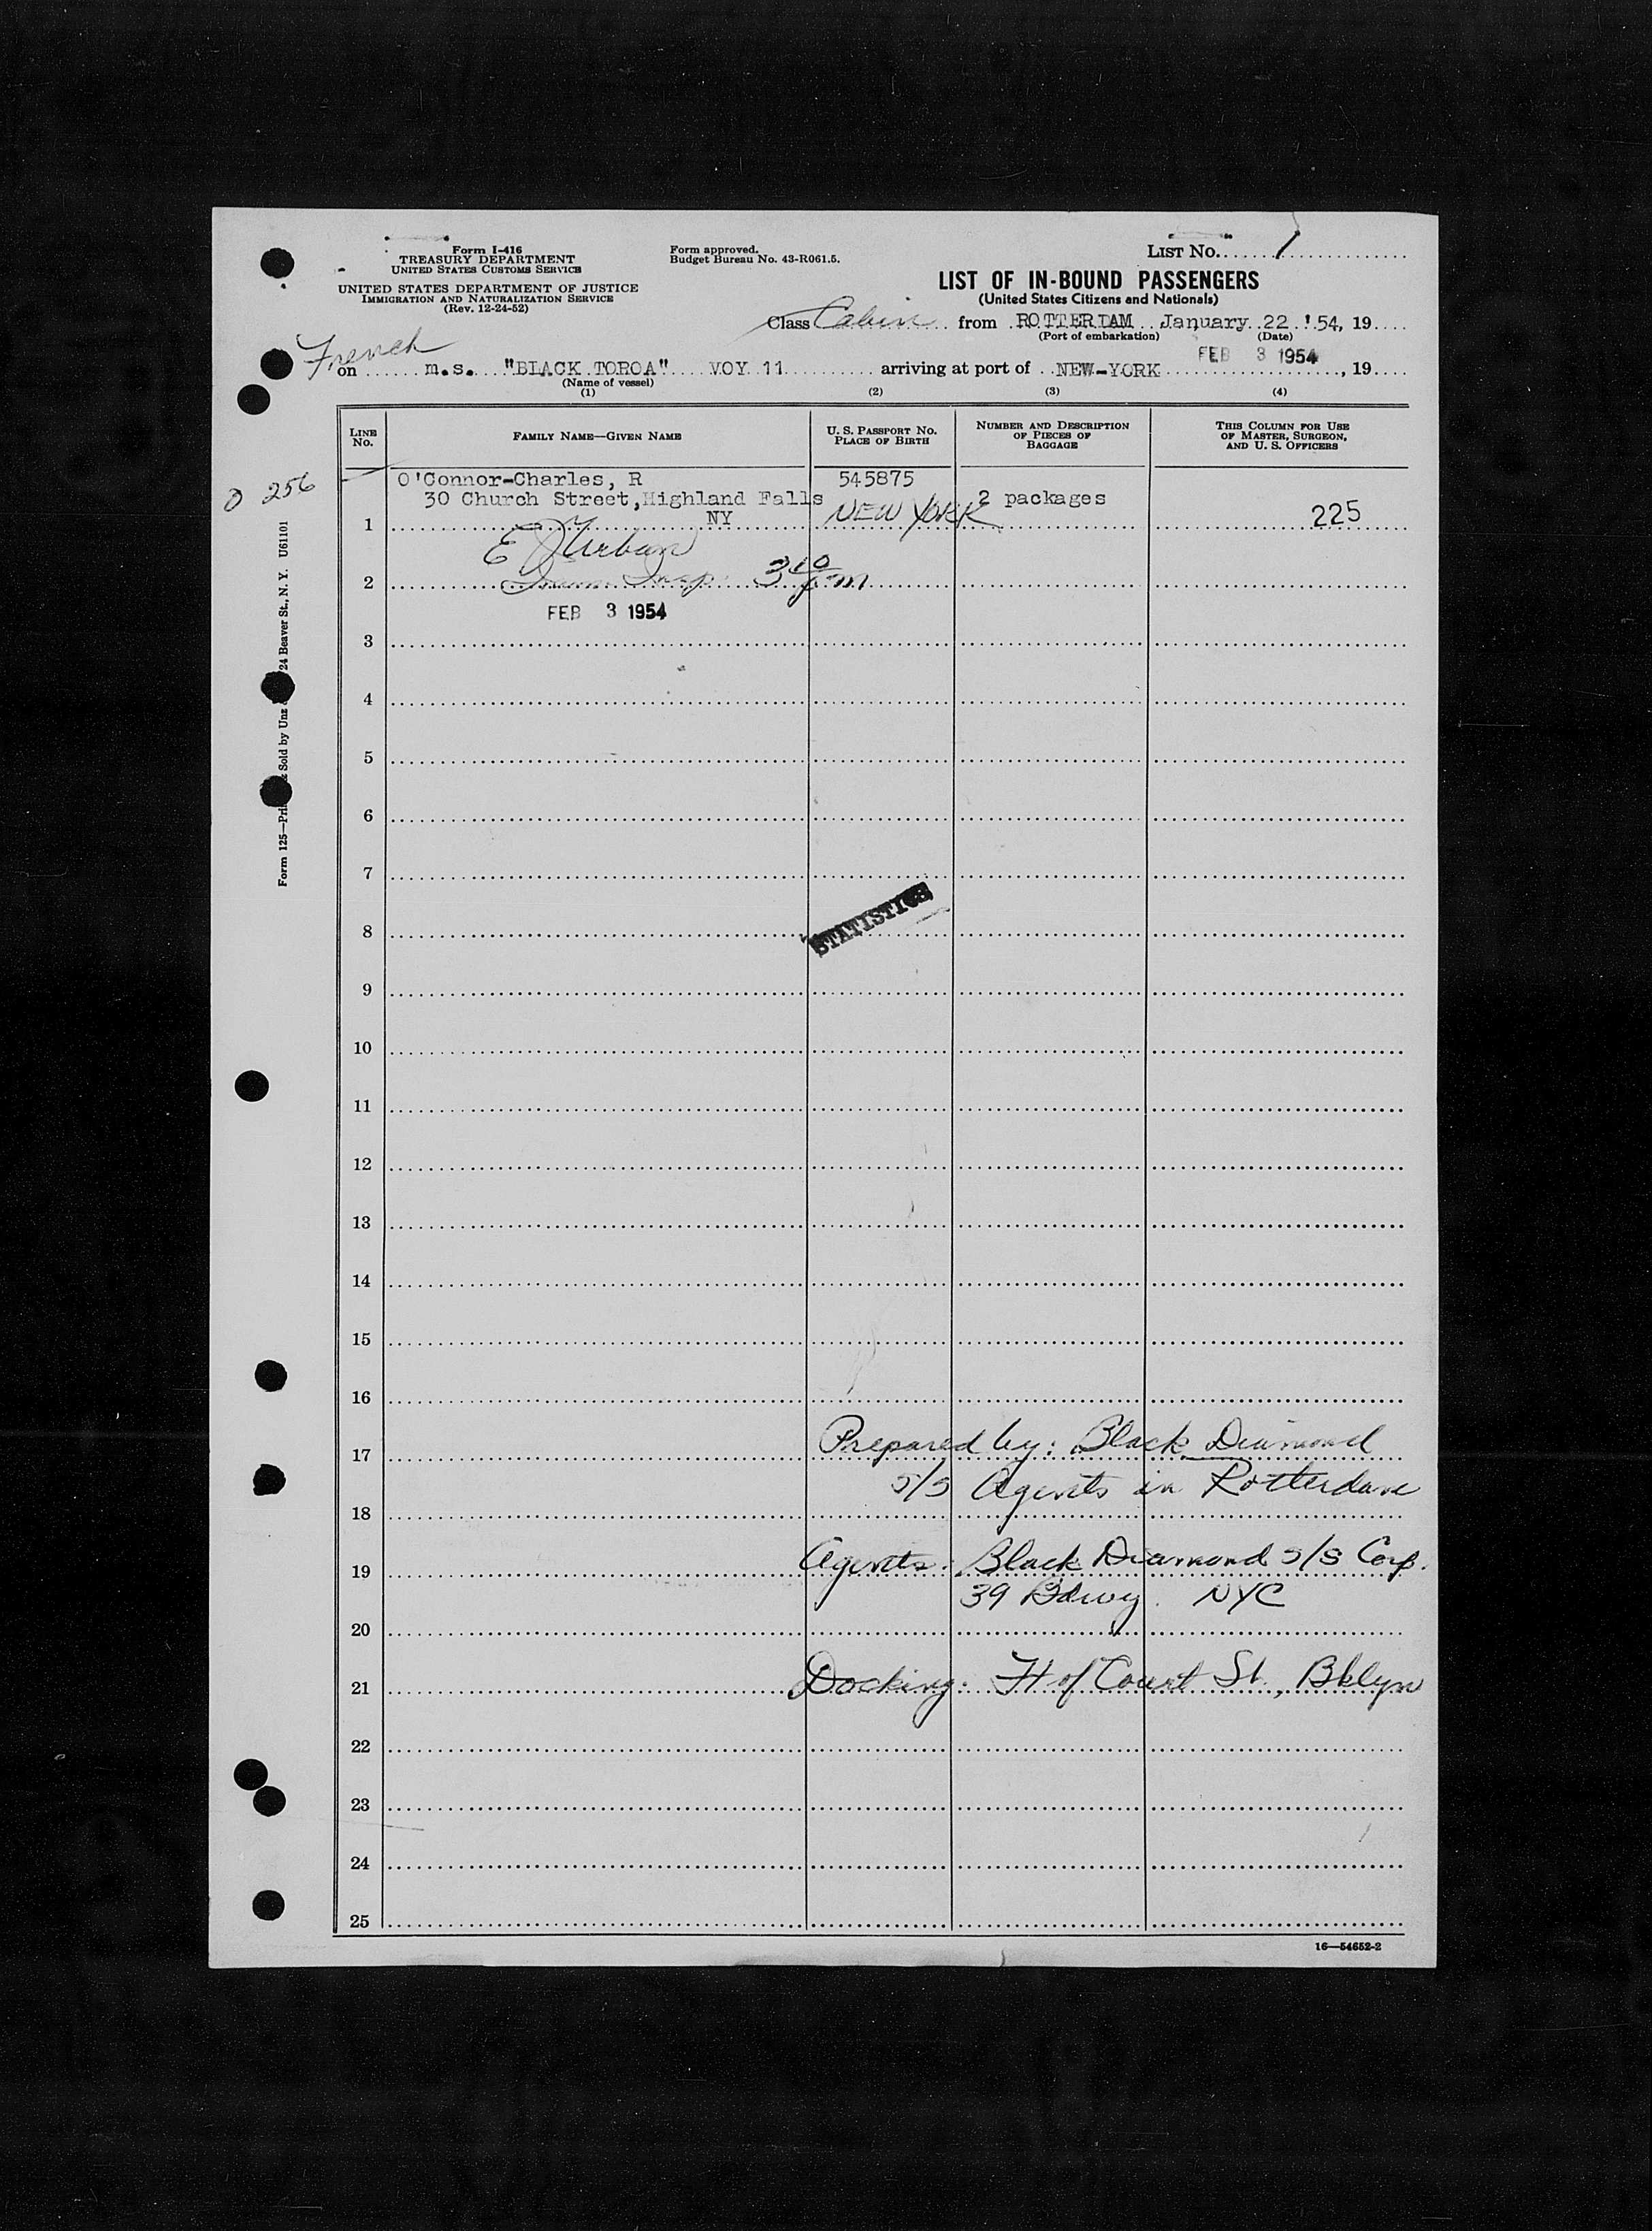 Form I-416
TREASURY DEPARTMENT
UNITED STATES CUSTOMS SERVICE
UNITED STATES DEPARTMENT OF JUSTICE
IMMIGRATION AND NATURALIZATION SERVICE
(Rev. 12-24-52)
Form approved.
Budget Bureau No. 43-R061.5.
LIST No. 1
LIST OF IN-BOUND PASSENGERS
(United States Citizens and Nationals)
Class Cabin from ROTTERDAM January 22 '54, 19
(Port of embarkation) (Date)
French
FEB 3 1954
on m.s. "BLACK TOROA" VOY 11 arriving at port of NEW-YORK , 19
(Name of vessel)
(1) (2) (3) (4)
LINE No. FAMILY NAME—GIVEN NAME U. S. PASSPORT No. PLACE OF BIRTH NUMBER AND DESCRIPTION OF PIECES OF BAGGAGE THIS COLUMN FOR USE OF MASTER, SURGEON, AND U. S. OFFICERS
O'Connor-Charles, R 545875
256
30 Church Street,Highland Falls 2 packages
1 NY NEW YORK 225
E J Urban
2 Insp. 3 10 pm
FEB 3 1954
3
4
5
6
7
STATISTICS
8
9
10
11
12
13
14
15
16
Prepared by: Black Diamond
17
S/S Agents in Rotterdam
18
Agents: Black Diamond S/S Corp.
19
39 Bdwy. NYC
20
Docking: Ft of Court St., Bklyn
21
22
23
24
25
16—54652-2
Form 125—Pri Sold by Unz 24 Beaver St., N. Y. U61101